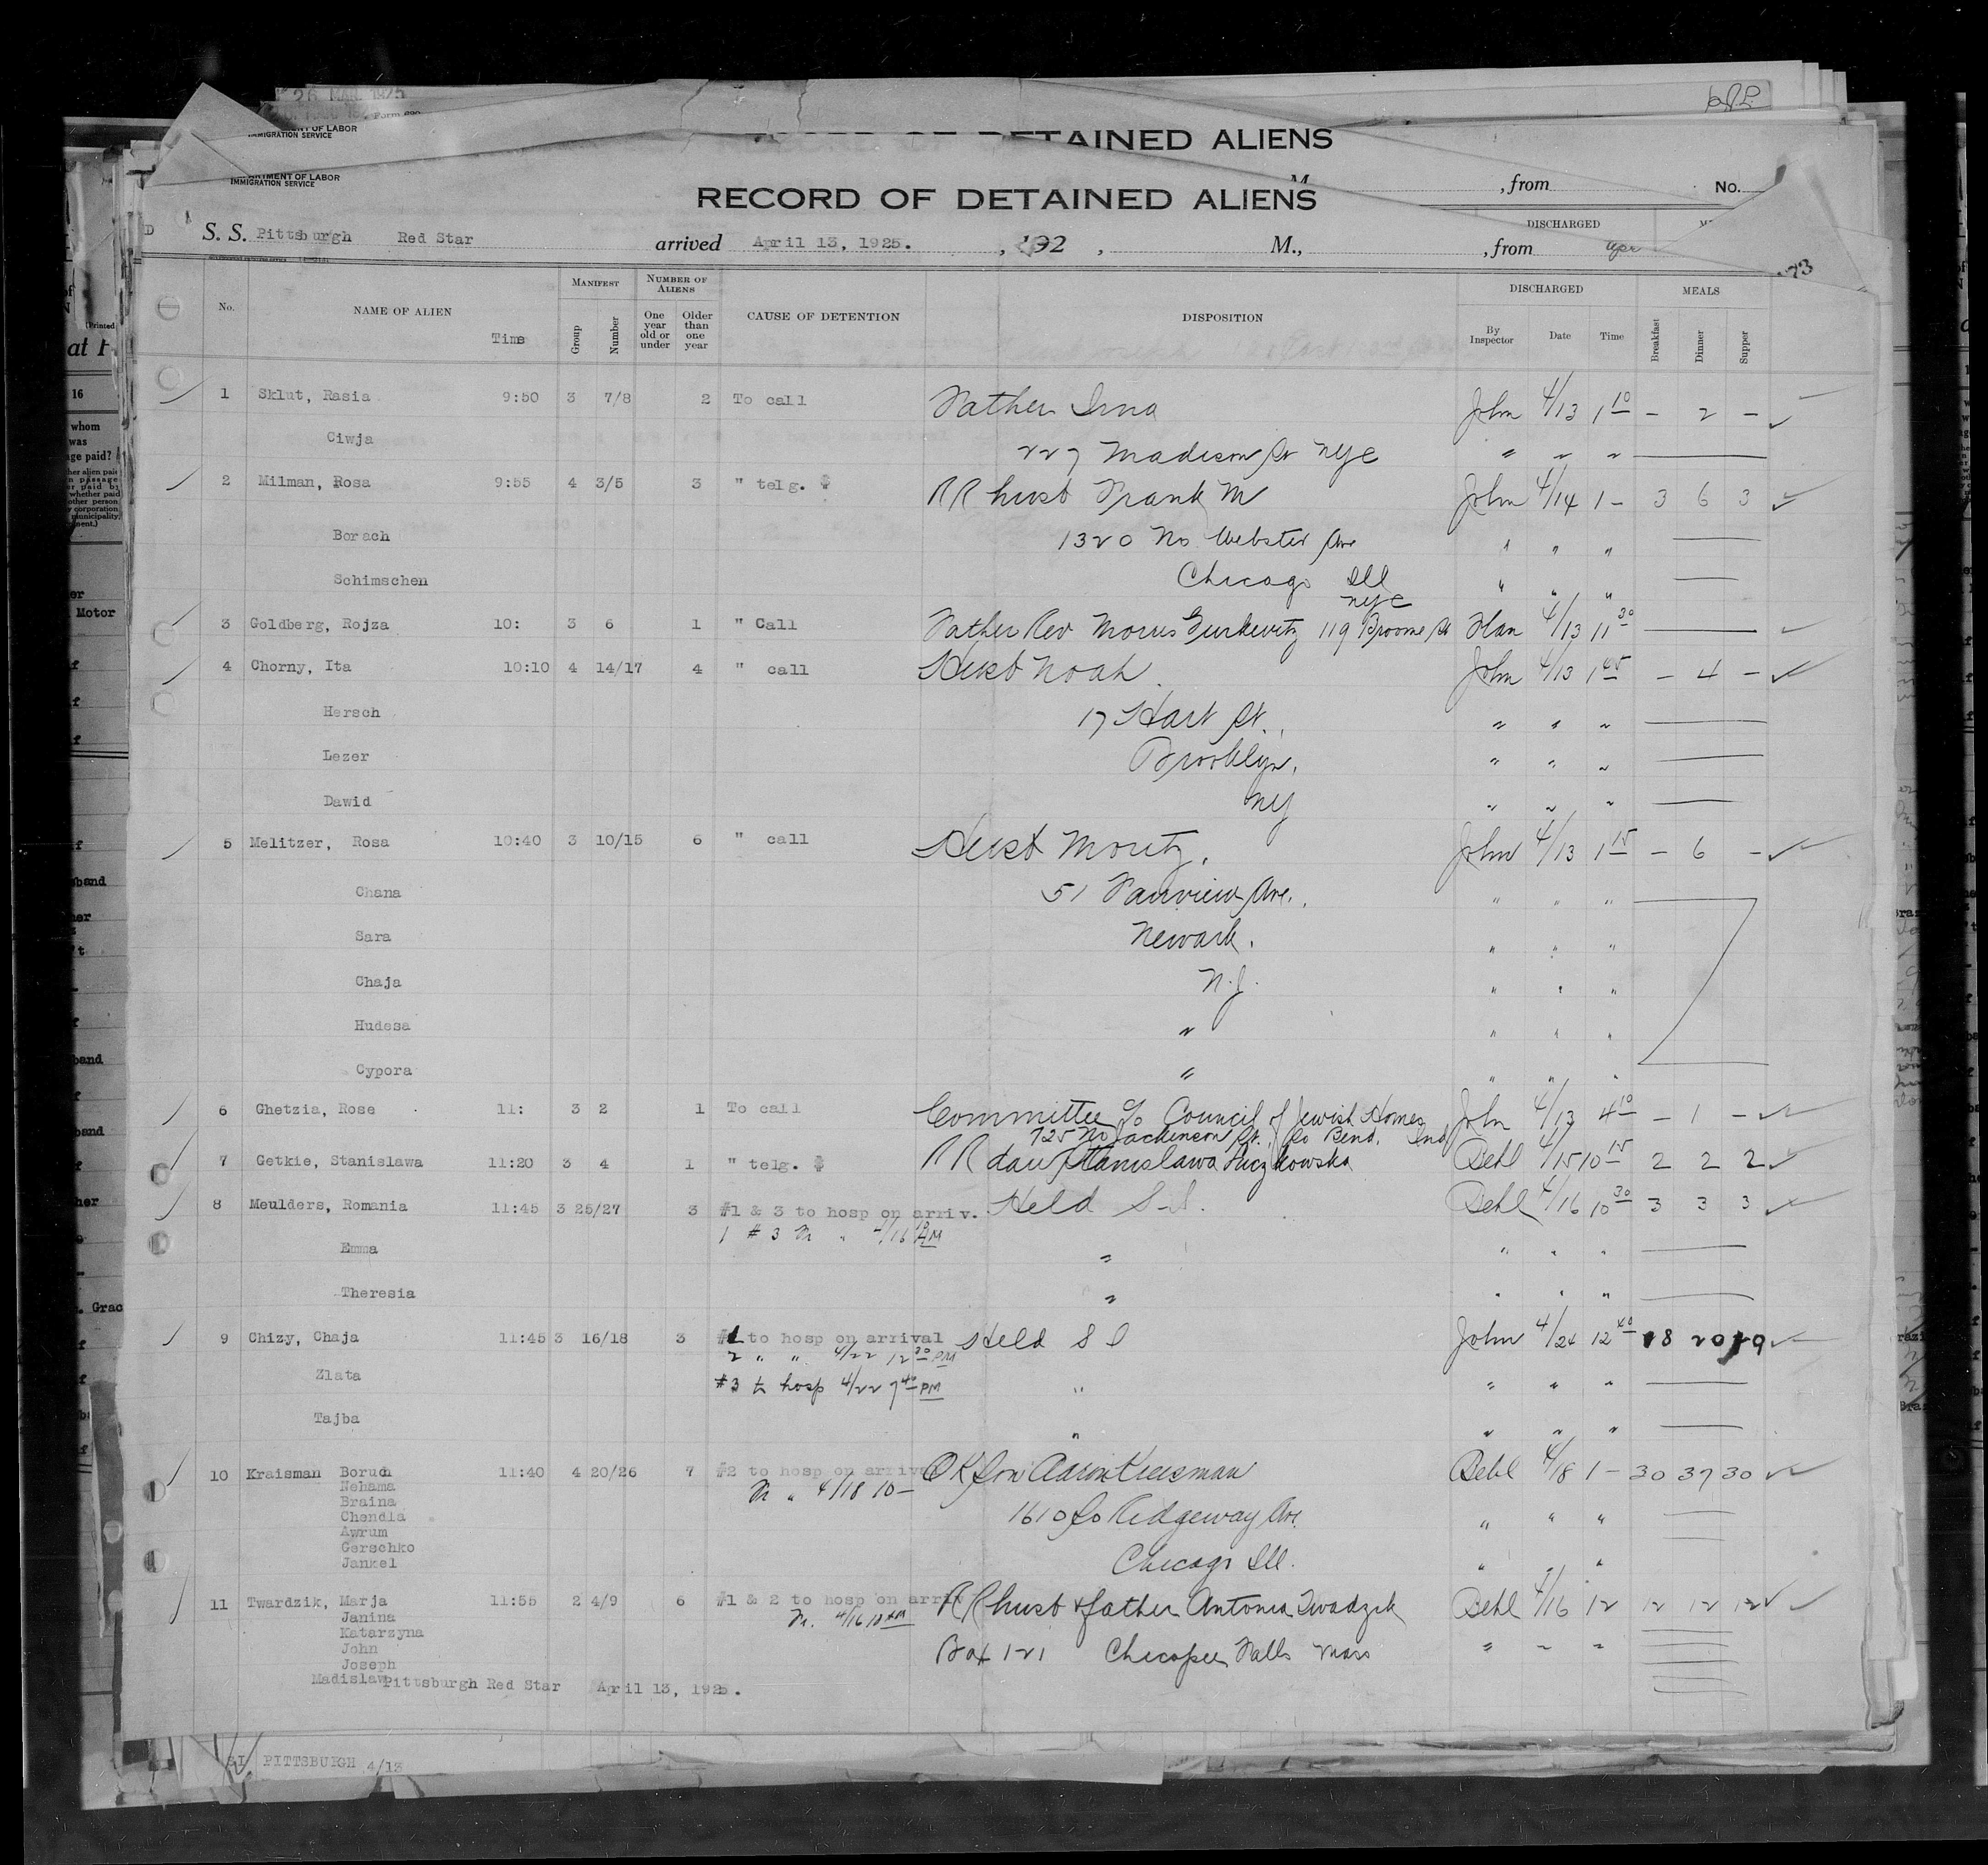 26 MAR 1925
Form 680
DEPARTMENT OF LABOR
IMMIGRATION SERVICE
DETAINED ALIENS
, from No.
DEPARTMENT OF LABOR
IMMIGRATION SERVICE
RECORD OF DETAINED ALIENS
DISCHARGED
S. S. Pittsburgh Red Star arrived April 13, 1925. , 192 , M., , from
No. NAME OF ALIEN Time MANIFEST Group Number NUMBER OF ALIENS One year old or under Older than one year CAUSE OF DETENTION DISPOSITION DISCHARGED By Inspector Date Time MEALS Breakfast Dinner Supper
1 Sklut, Rasia 9:50 3 7/8 2 To call Father John 4/13 1 10 - 2 -
Ciwja 227 Madison St NYC " " "
2 Milman, Rosa 9:55 4 3/5 3 " telg. RR husb Frank M John 4/14 1 - 3 6 3
Borach 1320 No Webster Ave " " "
Schimschen Chicago Ill " " "
NYC
3 Goldberg, Rojza 10: 3 6 1 " Call Father Rev Morris Gurkevitz 119 Broome St Han 4/13 11 30
4 Chorny, Ita 10:10 4 14/17 4 " call Husb Noah John 4/13 1 45 - 4 -
Hersch 17 Hart St., " " "
Lezer Brooklyn, " " "
Dawid NY " " "
5 Melitzer, Rosa 10:40 3 10/15 6 " call Husb Moritz, John 4/13 1 15 - 6 -
Chana 51 Fairview Ave., " " "
Sara Newark. " " "
Chaja N.J. " " "
Hudesa " " " "
Cypora " " " "
6 Ghetzia, Rose 11: 3 2 1 To call Committee c/o Council of Jewish Homes John 4/13 4 10 - 1 -
725 No So Bend, Ind
7 Getkie, Stanislawa 11:20 3 4 1 " telg. RR dau Stanislawa Dehl 4/15 10 15 2 2 2
8 Meulders, Romania 11:45 3 25/27 3 #1 & 3 to hosp on arriv. Held S.I. Dehl 4/16 10 30 3 3 3
1 # 3 " 4/16 AM
Emma " " " "
Theresia " " " "
9 Chizy, Chaja 11:45 3 16/18 3 #1 to hosp on arrival Held S I John 4/24 12 40 18 20 19
2 " " 4/22 12 30 PM
Zlata #3 to hosp 4/22 7 40 PM " " " "
Tajba " " " "
10 Kraisman Boruch 11:40 4 20/26 7 #2 to hosp on arrival OK Son Aaron Kreisman Dehl 4/18 1 - 30 37 30
Nehama " 4/18 10 -
Braina
Chendla 1610 So Ridgeway Ave. " " "
Awrum
Gerschko
Jankel Chicago Ill. " " "
11 Twardzik, Marja 11:55 2 4/9 6 #1 & 2 to hosp on arriv RR husb & father Antonia Twadzik Dehl 4/16 12 12 12 12
Janina 4/16 10 AM
Katarzyna
John Box 121 Chicopee Falls Mass " " "
Joseph
Madislaw Pittsburgh Red Star April 13, 1925.
SI PITTSBURGH 4/13